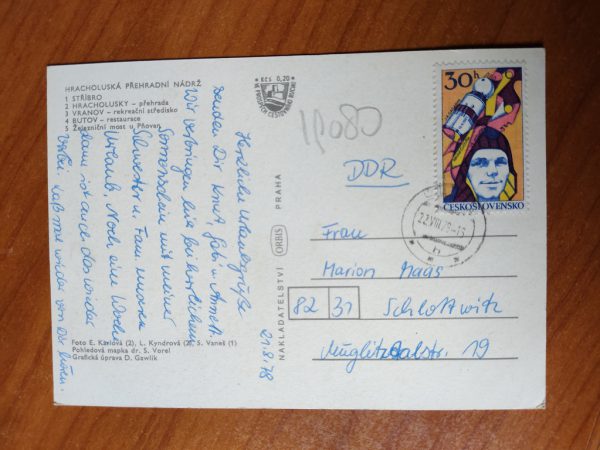 HRACHOLUSKÁ PŘEHRADNÍ NÁDRŽ
1 STŘÍBRO
2 HRACHOLUSKY – přehrada
3 VRANOV – rekreační středisko
4 BUTOV – restaurace
5 Železniční most u Pňovan
KčS 0,20
Herzliche Urlaubsgrüße
senden Dir Knut, Gabi u. Annett.
Wir verbringen hier bei herrlichem
Sonnenschein mit meiner
Schwester u. Fam. unseren
Urlaub. Noch eine Woche
dann ist auch das wieder
vorbei. Laß mal wieder von Dir hören.
21.8.78
Foto E. Karlová (2), L. Kyndrová (2), S. Vaneš (1)
Pohledová mapka dr. S. Vorel
Grafická úprava D. Gawlik
NAKLADATELSTVÍ ORBIS PRAHA
11080
30h
ČESKOSLOVENSKO
22.VIII.78-16
DDR
Frau
Marion Maas
82 31 Schlottwitz
Müglitztalstr. 19